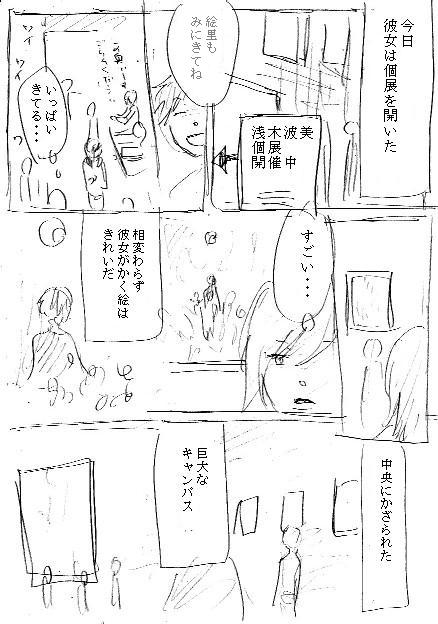 今日
彼女は個展を開いた
浅木波美
個展
開催中
絵里も
みにきてね
いっぱい
きてる・・・
ワイ
ワイ
すごい・・・
相変わらず
彼女がかく絵は
きれいだ
中央にかざられた
巨大な
キャンバス